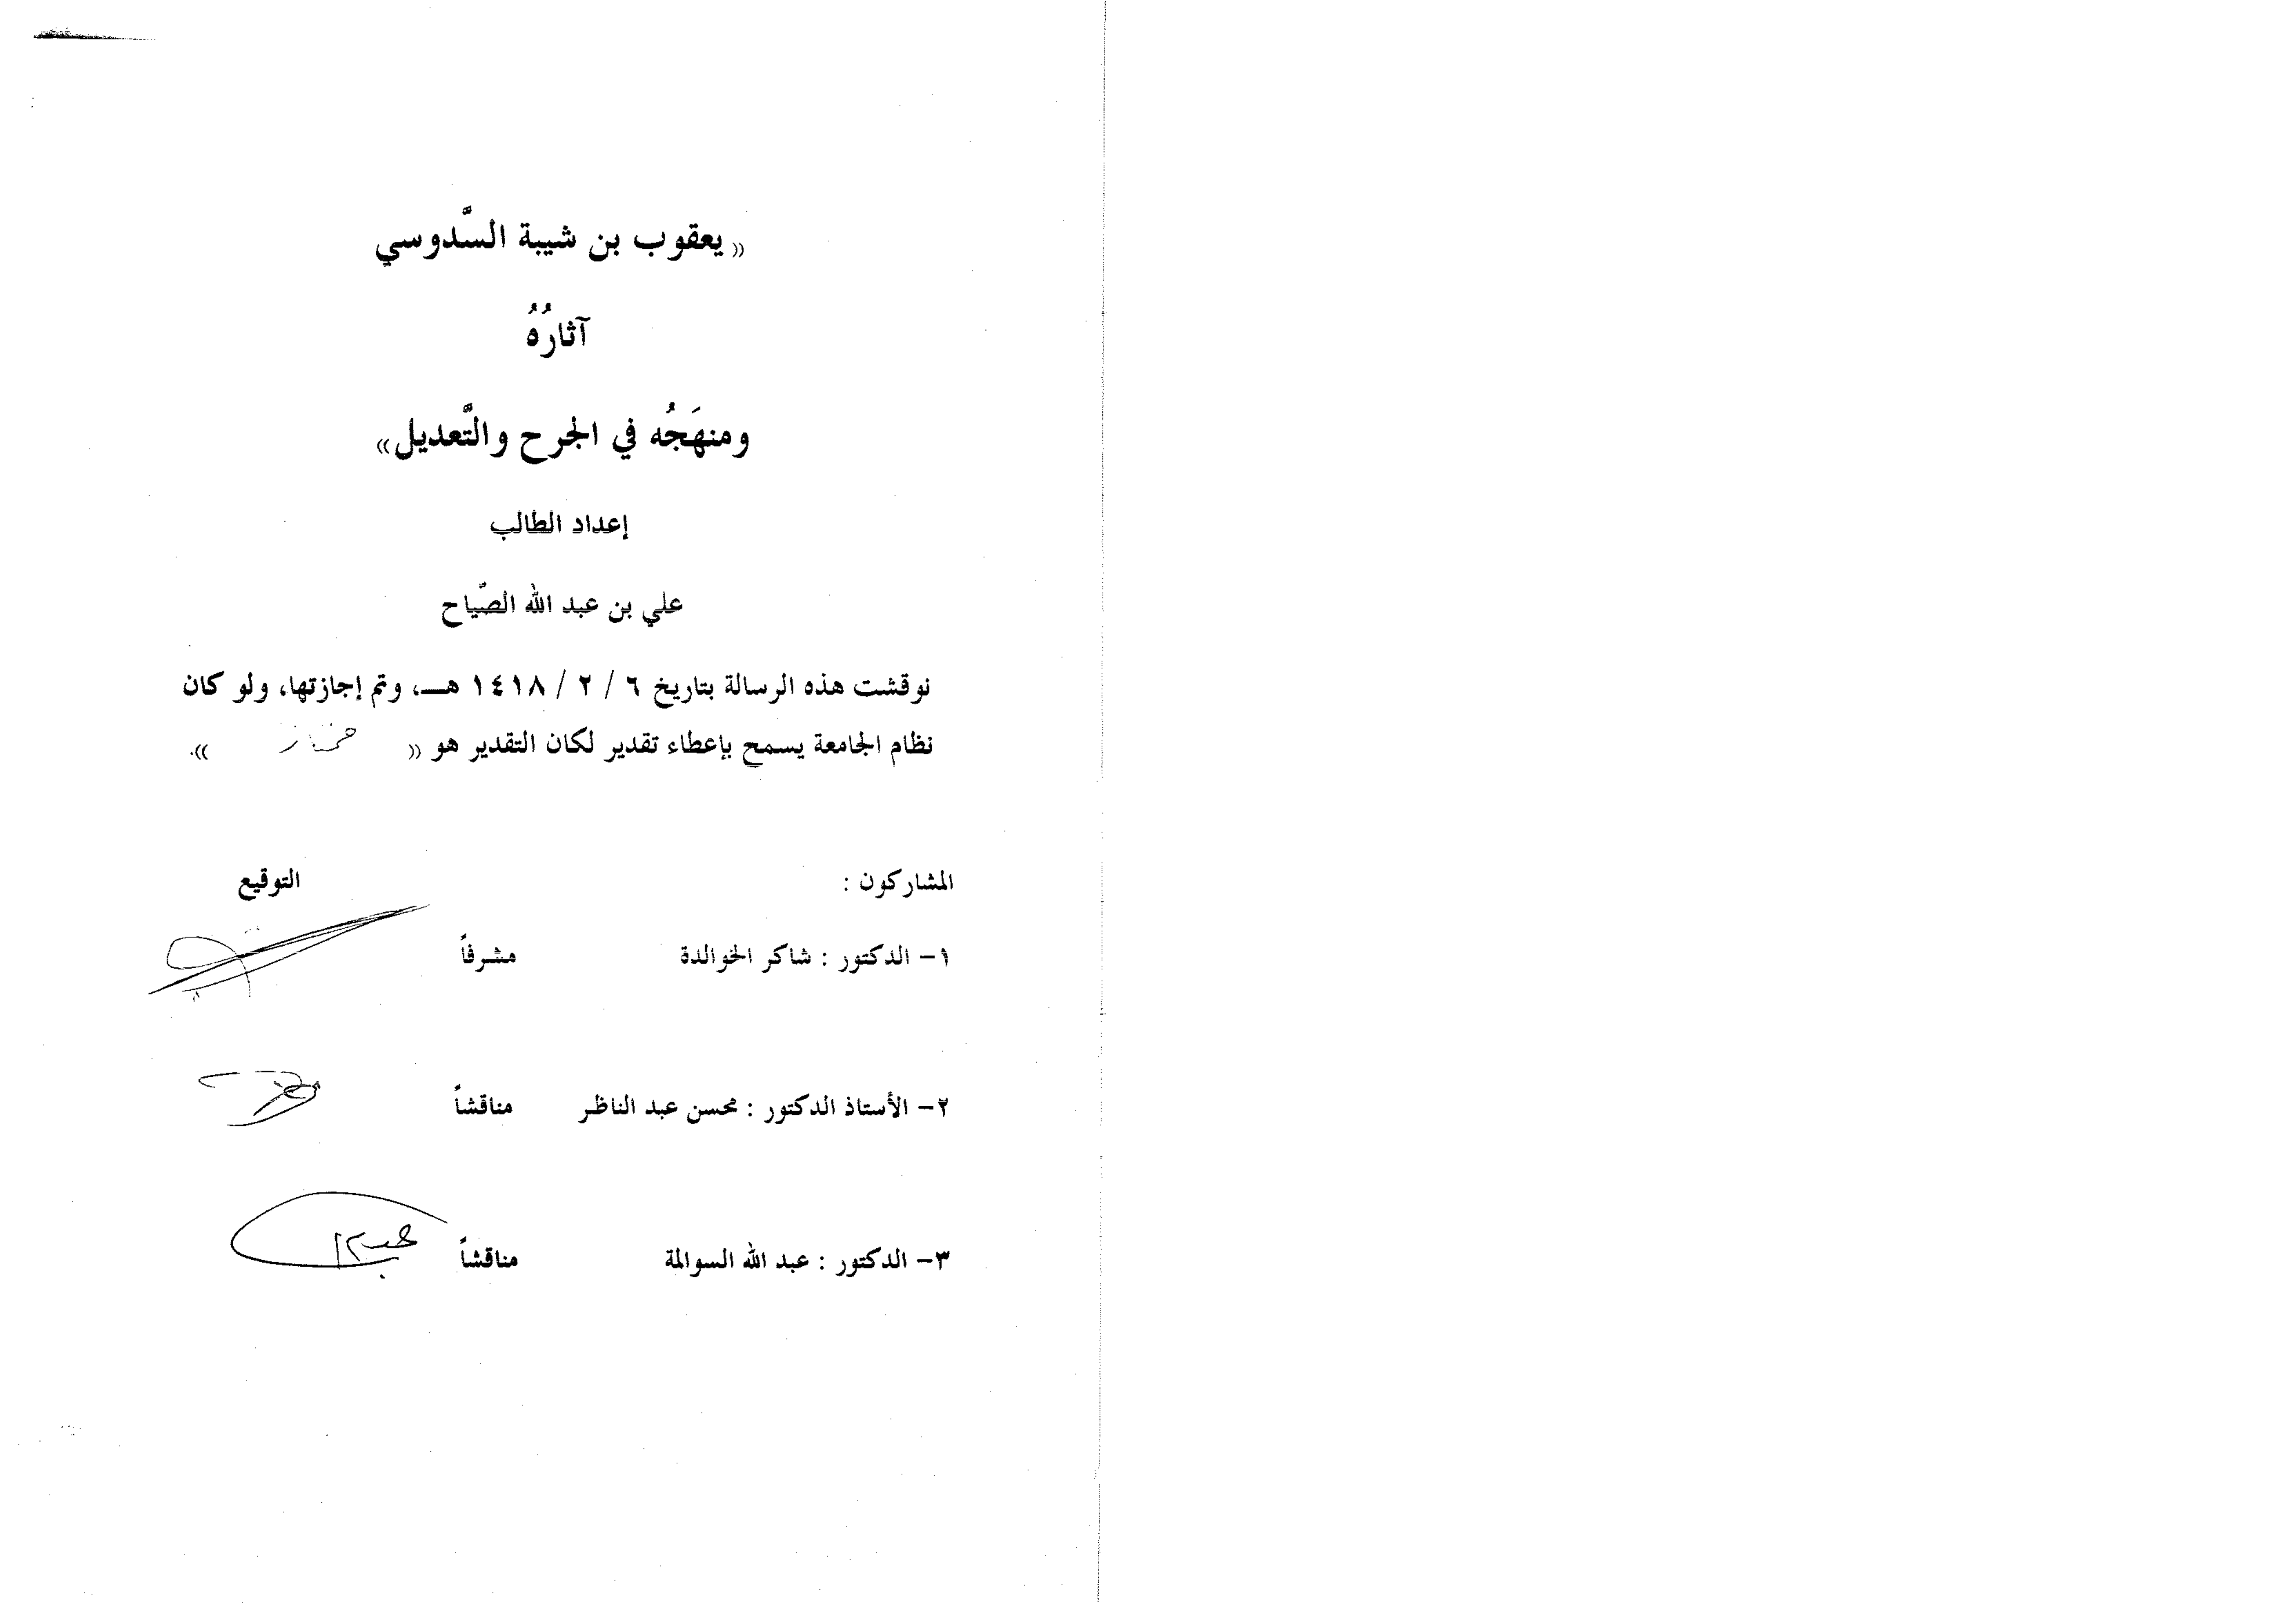 (( يعقوب بن شيبة السَّدوسي
آثارُهُ
ومنهَجُه في الجرح والتَّعديل))
إعداد الطالب
علي بن عبد الله الصّياح
نوقشت هذه الرسالة بتاريخ ٦ / ٢ / ١٤١٨ هـ، وتم إجازتها، ولو كان
نظام الجامعة يسمح بإعطاء تقدير لكان التقدير هو (( ممتاز )).
المشاركون : التوقيع
١- الدكتور : شاكر الخوالدة مشرفاً
٢- الأستاذ الدكتور : محسن عبد الناظر مناقشاً
٣- الدكتور : عبد الله السوالمة مناقشاً